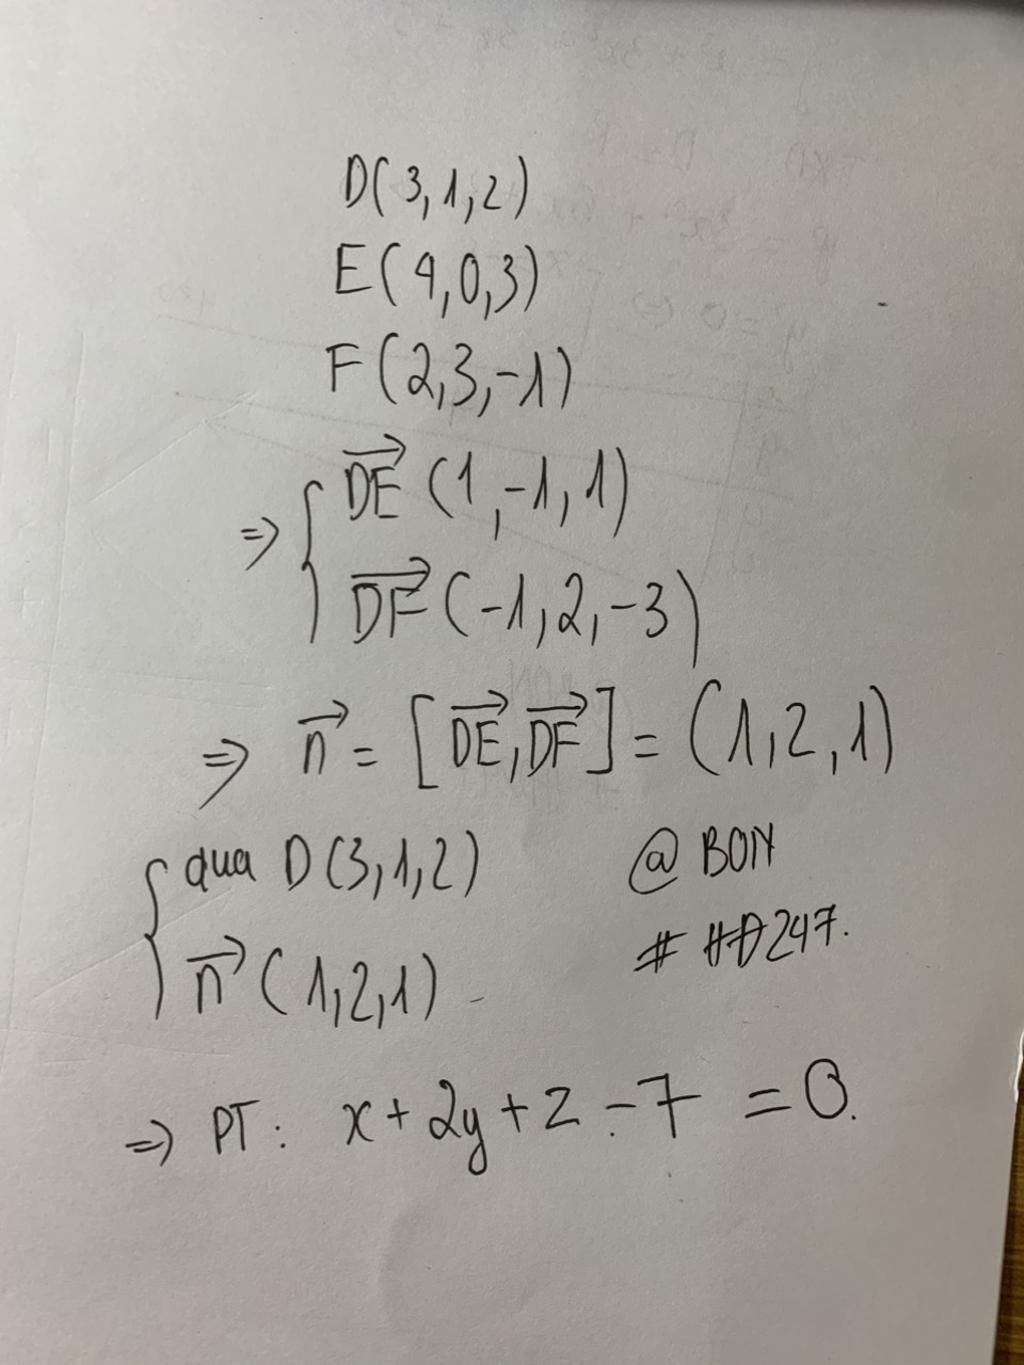 D(3,1,2)
E(4,0,3)
F(2,3,-1)
=> { DE→ (1,-1,1)
DF→ (-1,2,-3)
=> n→ = [DE→,DF→] = (1,2,1)
{ qua D(3,1,2)
@ BON
n→ (1,2,1)
# HD247.
=> PT: x+2y+z-7 = 0.